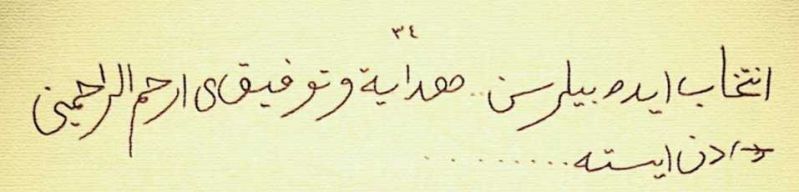 ٣٤
انتخاب ايده بيلرسن.. هداية و توفيقى ارحم الراحمين
دن ايسته.........